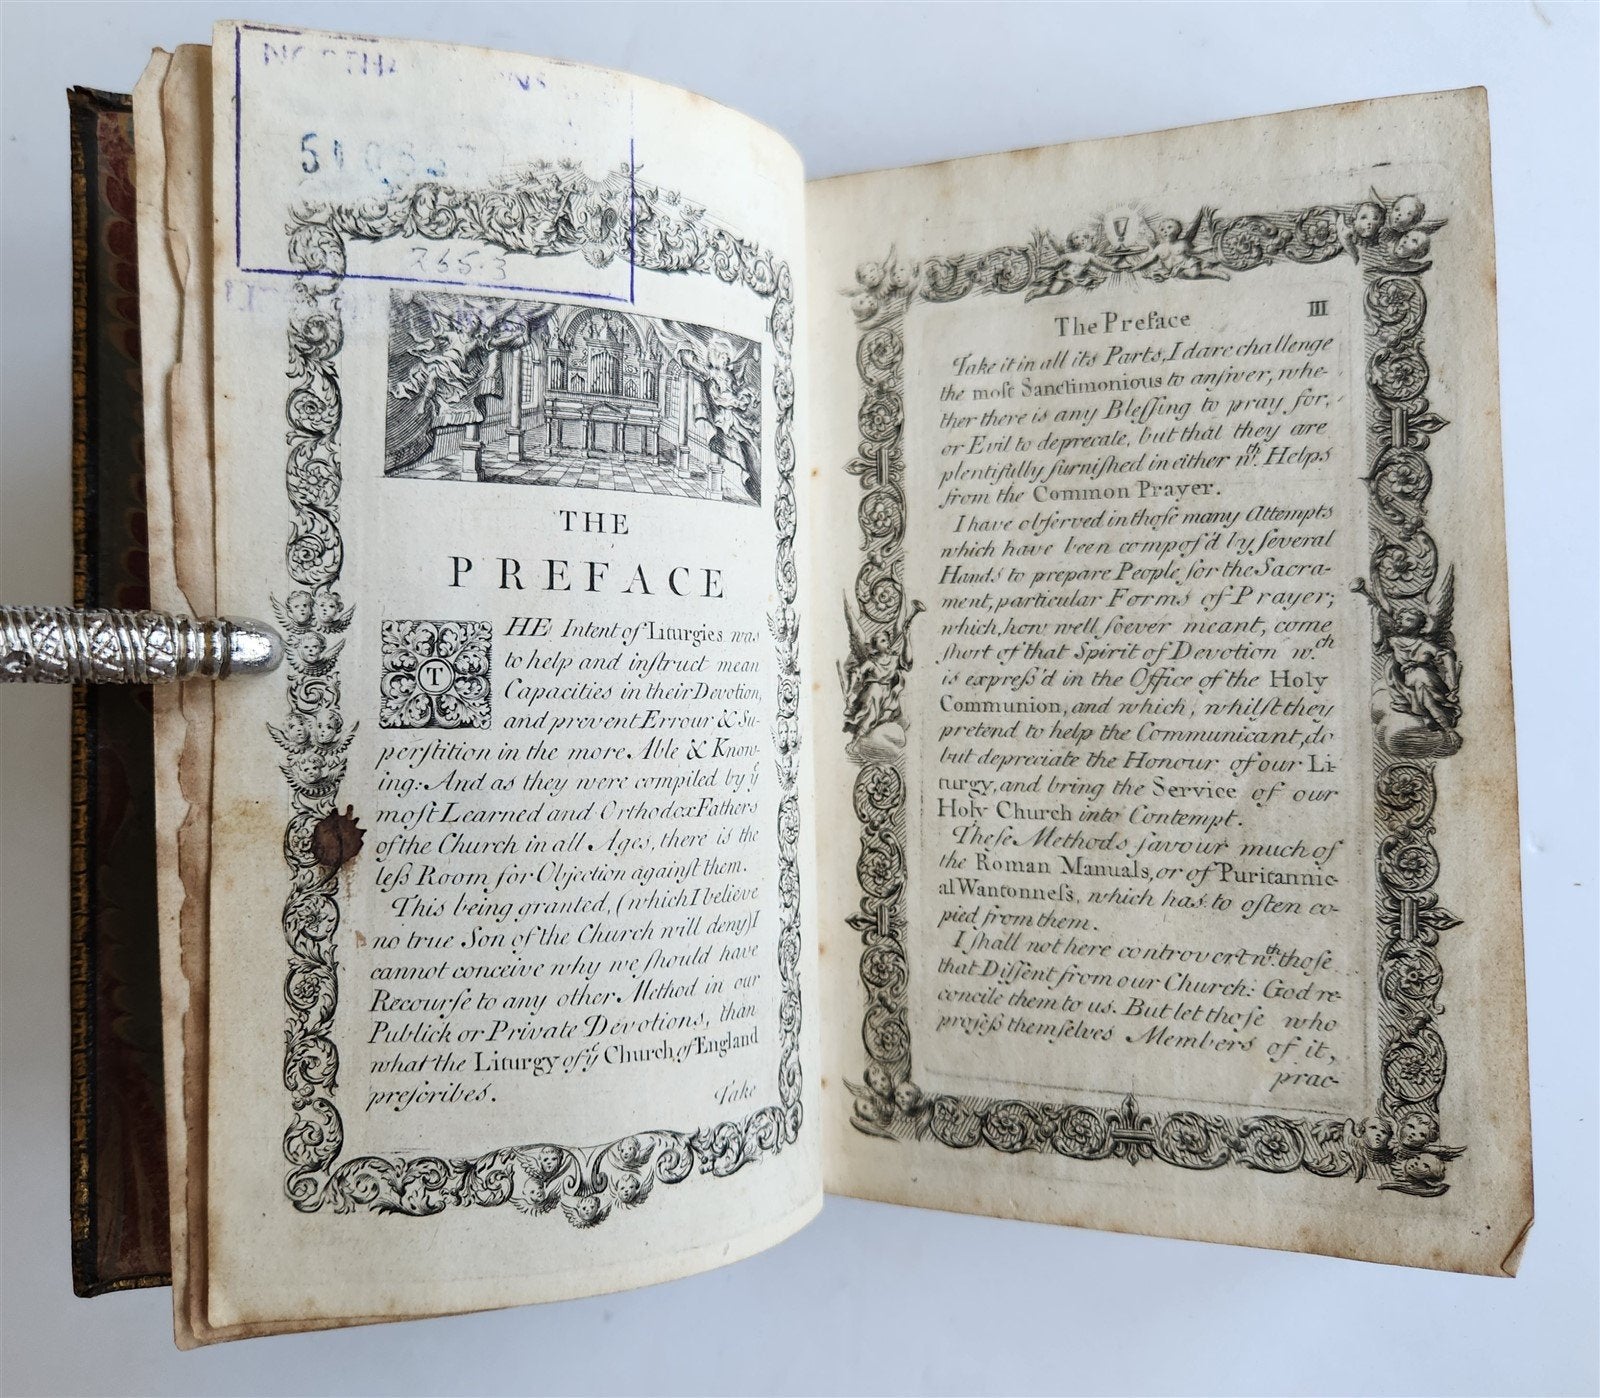 510
255.3
THE
PREFACE
THE Intent of Liturgies was
to help and inſtruct mean
Capacities in their Devotion,
and prevent Errour & Su-
perſtition in the more Able & Know-
ing: And as they were compiled by yͤ
moſt Learned and Orthodox Fathers
of the Church in all Ages, there is the
leſs Room for Objection againſt them.
This being granted, (which I believe
no true Son of the Church will deny) I
cannot conceive why we ſhould have
Recourſe to any other Method in our
Publick or Private Devotions, than
what the Liturgy of yͤ Church of England
preſcribes.
Take
The Preface III
Take it in all its Parts, I dare challenge
the moſt Sanctimonious to anſwer, whe-
ther there is any Bleſſing to pray for,
or Evil to deprecate, but that they are
plentifully furniſhed in either wth. Helps
from the Common Prayer.
I have obſerved in thoſe many Attempts
which have been compoſ'd by ſeveral
Hands to prepare People for the Sacra-
ment, particular Forms of Prayer;
which, how well ſoever meant, come
ſhort of that Spirit of Devotion w.ch
is expreſs'd in the Office of the Holy
Communion, and which, whilſt they
pretend to help the Communicant, do
but depreciate the Honour of our Li-
turgy, and bring the Service of our
Holy Church into Contempt.
Theſe Methods ſavour much of
the Roman Manuals, or of Puritannic-
al Wantonneſs, which has to often co-
pied from them.
I ſhall not here controvert wth. thoſe
that Diſſent from our Church: God re-
concile them to us. But let thoſe who
profeſs themſelves Members of it,
prac-